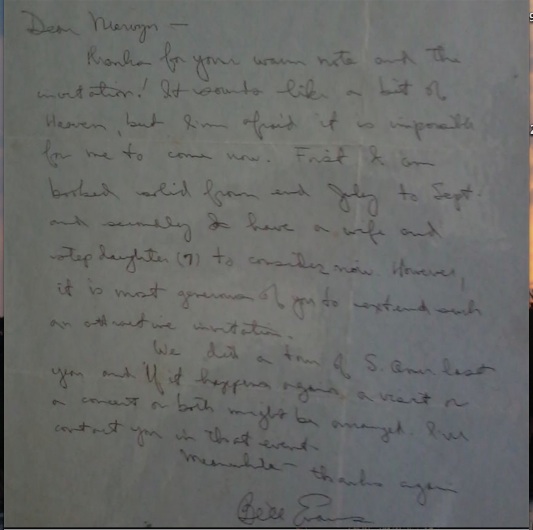 Dear Mervyn —
Thanks for your warm note and the
invitation! It sounds like a bit of
Heaven, but I'm afraid it is impossible
for me to come now. First I am
booked solid from end July to Sept.
and secondly I have a wife and
step daughter (7) to consider now. However,
it is most generous of you to extend such
an attractive invitation.
We did a tour of S. Amer last
year and if it happens again, a visit or
a concert or both might be arranged. I'll
contact you in that event.
Meanwhile — thanks again
Bill Evans